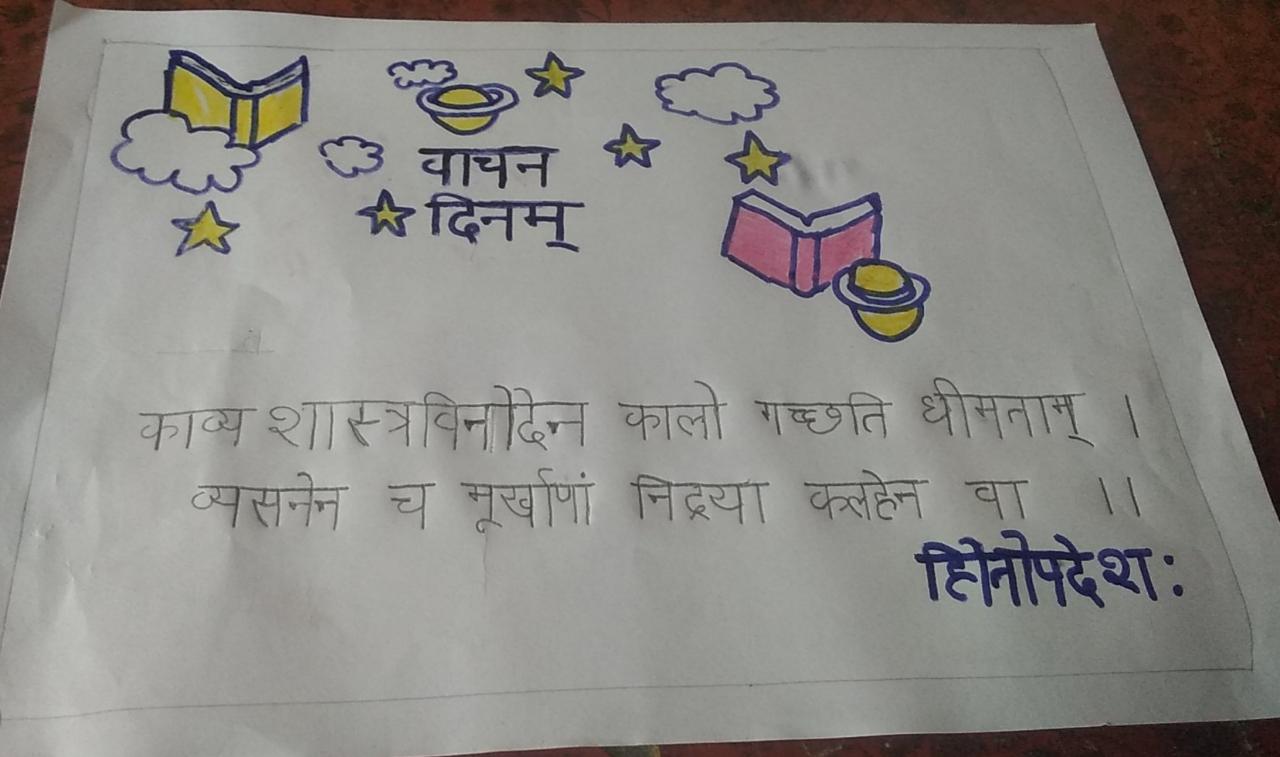 वाचन
दिनम्
काव्य शास्त्रविनोदेन कालो गच्छति धीमताम् ।
व्यसनेन च मूर्खाणां निद्रया कलहेन वा ।।
हितोपदेशः